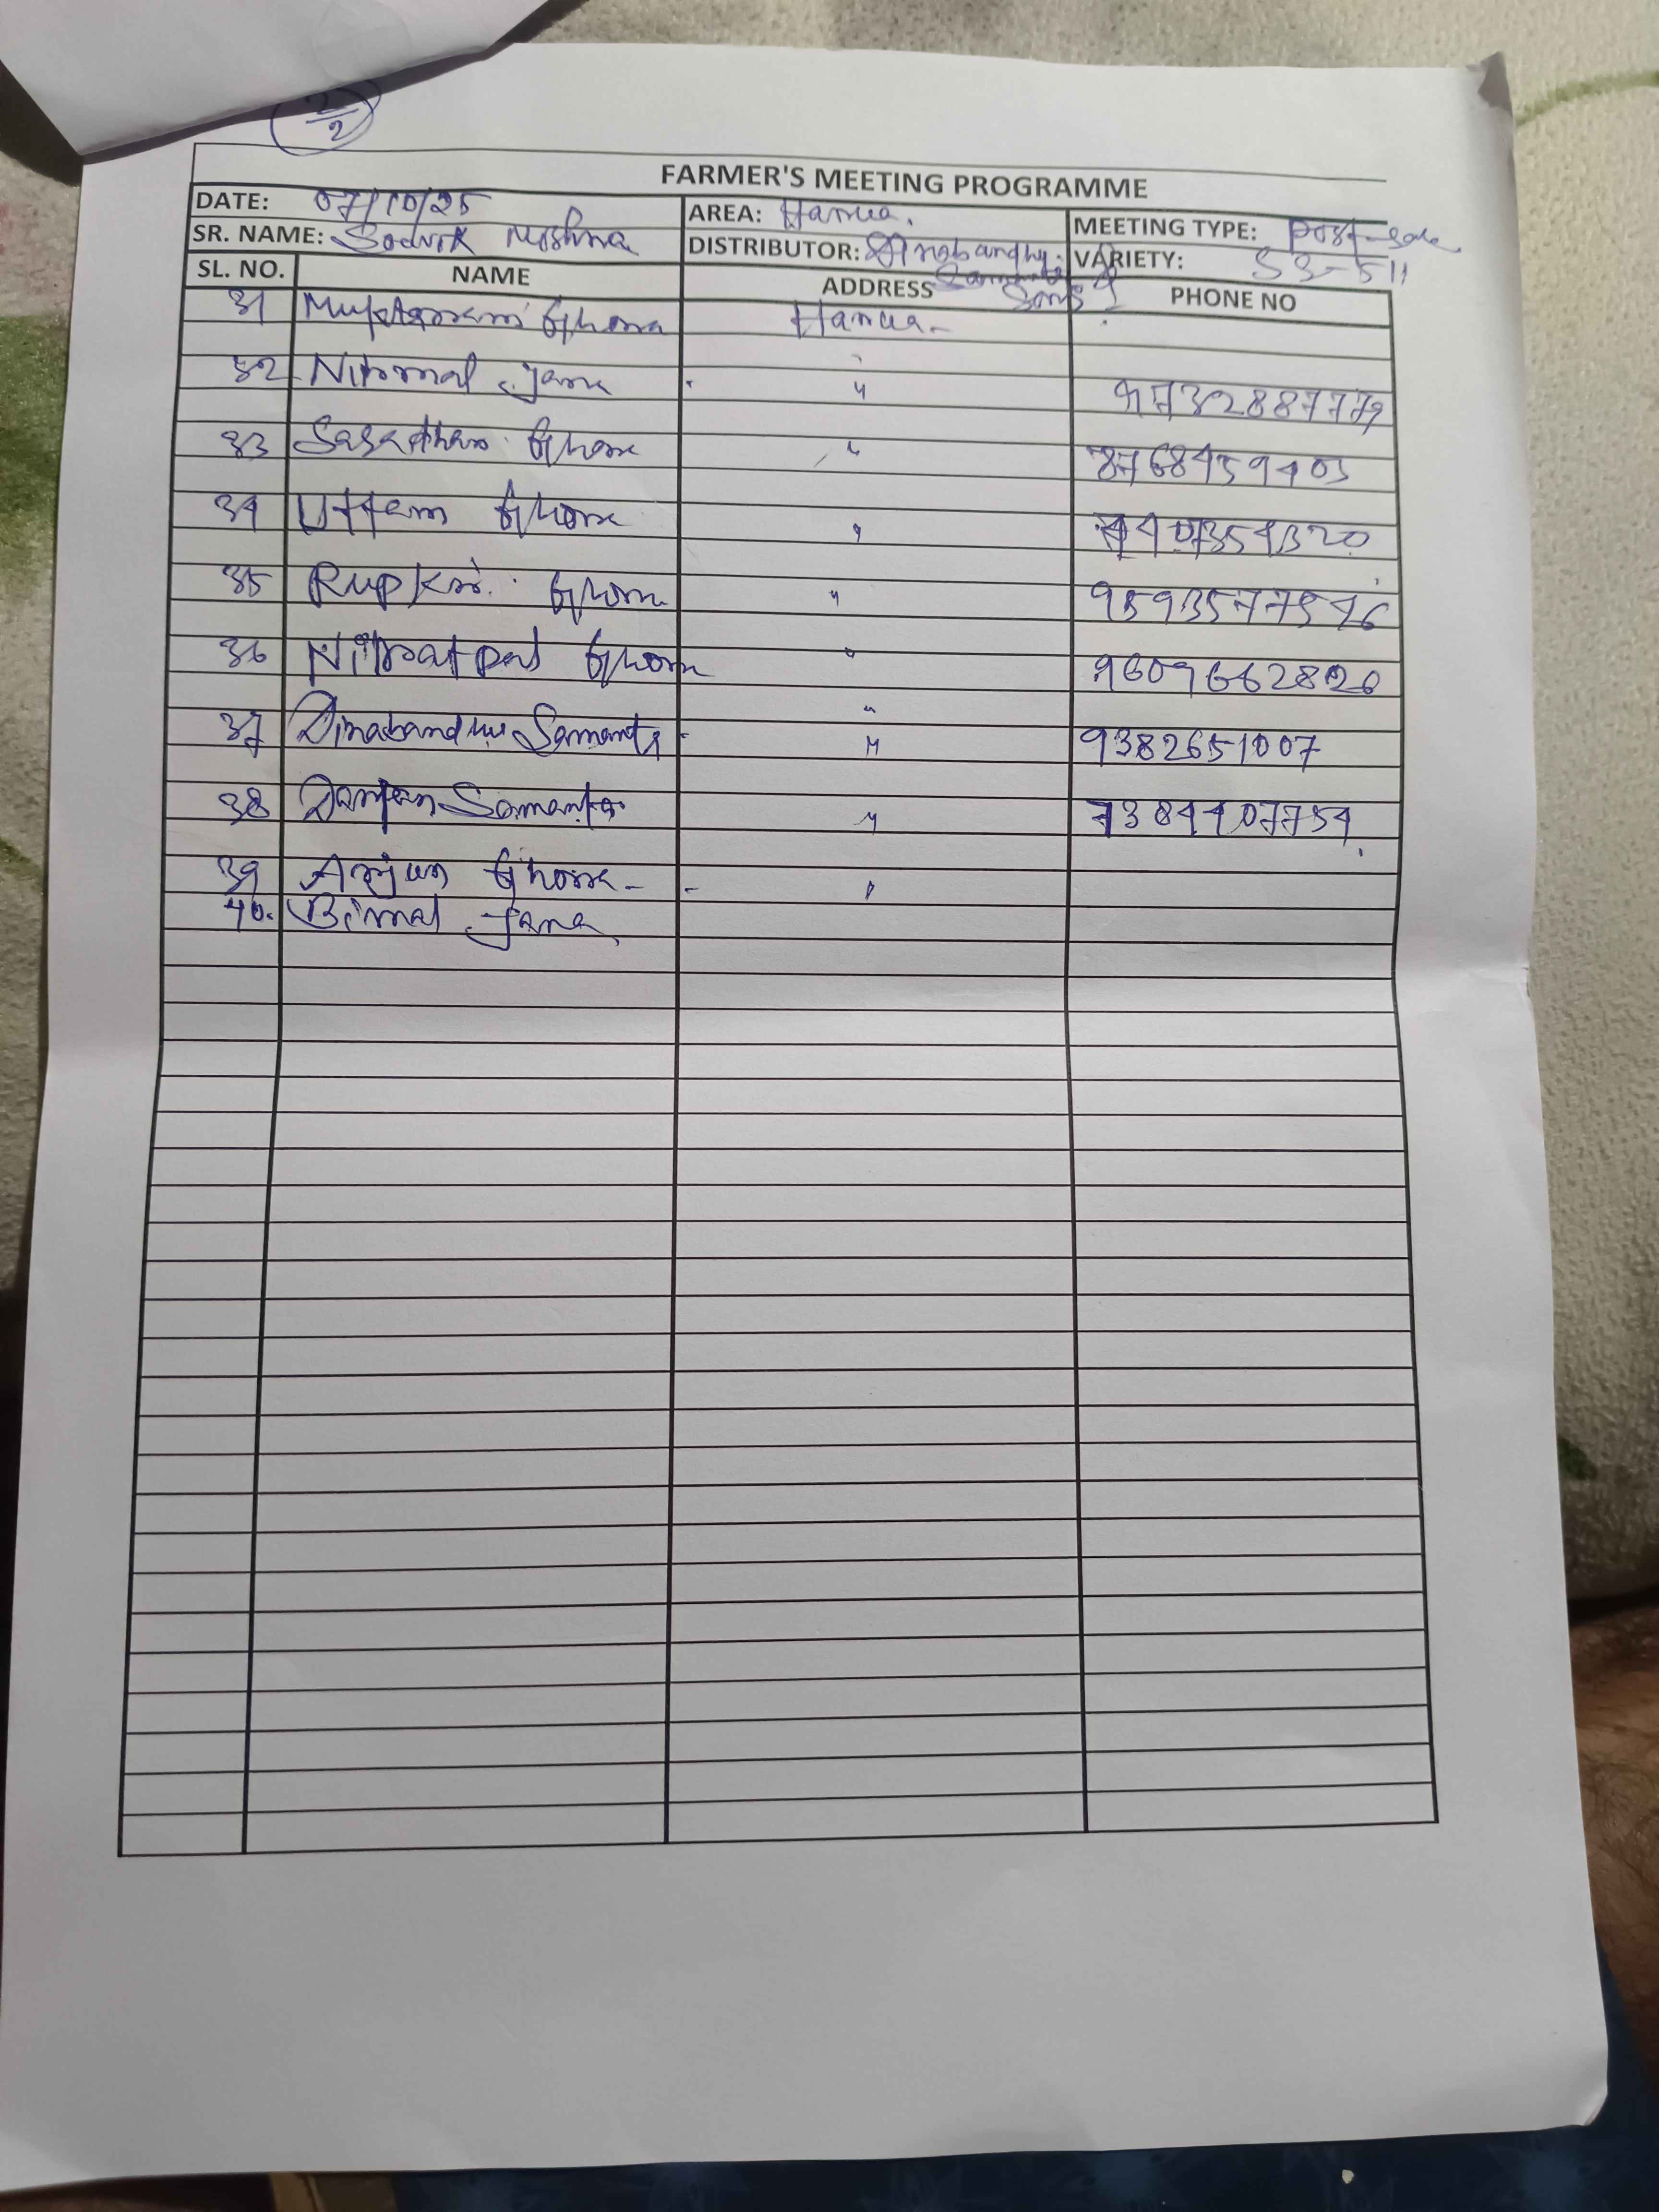 2/2
FARMER'S MEETING PROGRAMME
DATE: 07/10/25 AREA: Harua. MEETING TYPE: Post-sale
SR. NAME: Mishra DISTRIBUTOR: Dinabandhu Samanta & Sons VARIETY: SS-511
SL. NO. NAME ADDRESS PHONE NO
31 Muktaram Ghora Harua-
32 Nirmal Jana " 9732887779
33 Sasadhar Ghora " 8768459403
34 Uttam Ghora "
35 Rupkr. Ghora " 9593577576
36 Ghora " 9609662820
37 Dinabandhu Samanta " 9382651007
38 Samanta " 7384407754
39 Arjun Ghora - "
40. Bimal Jana